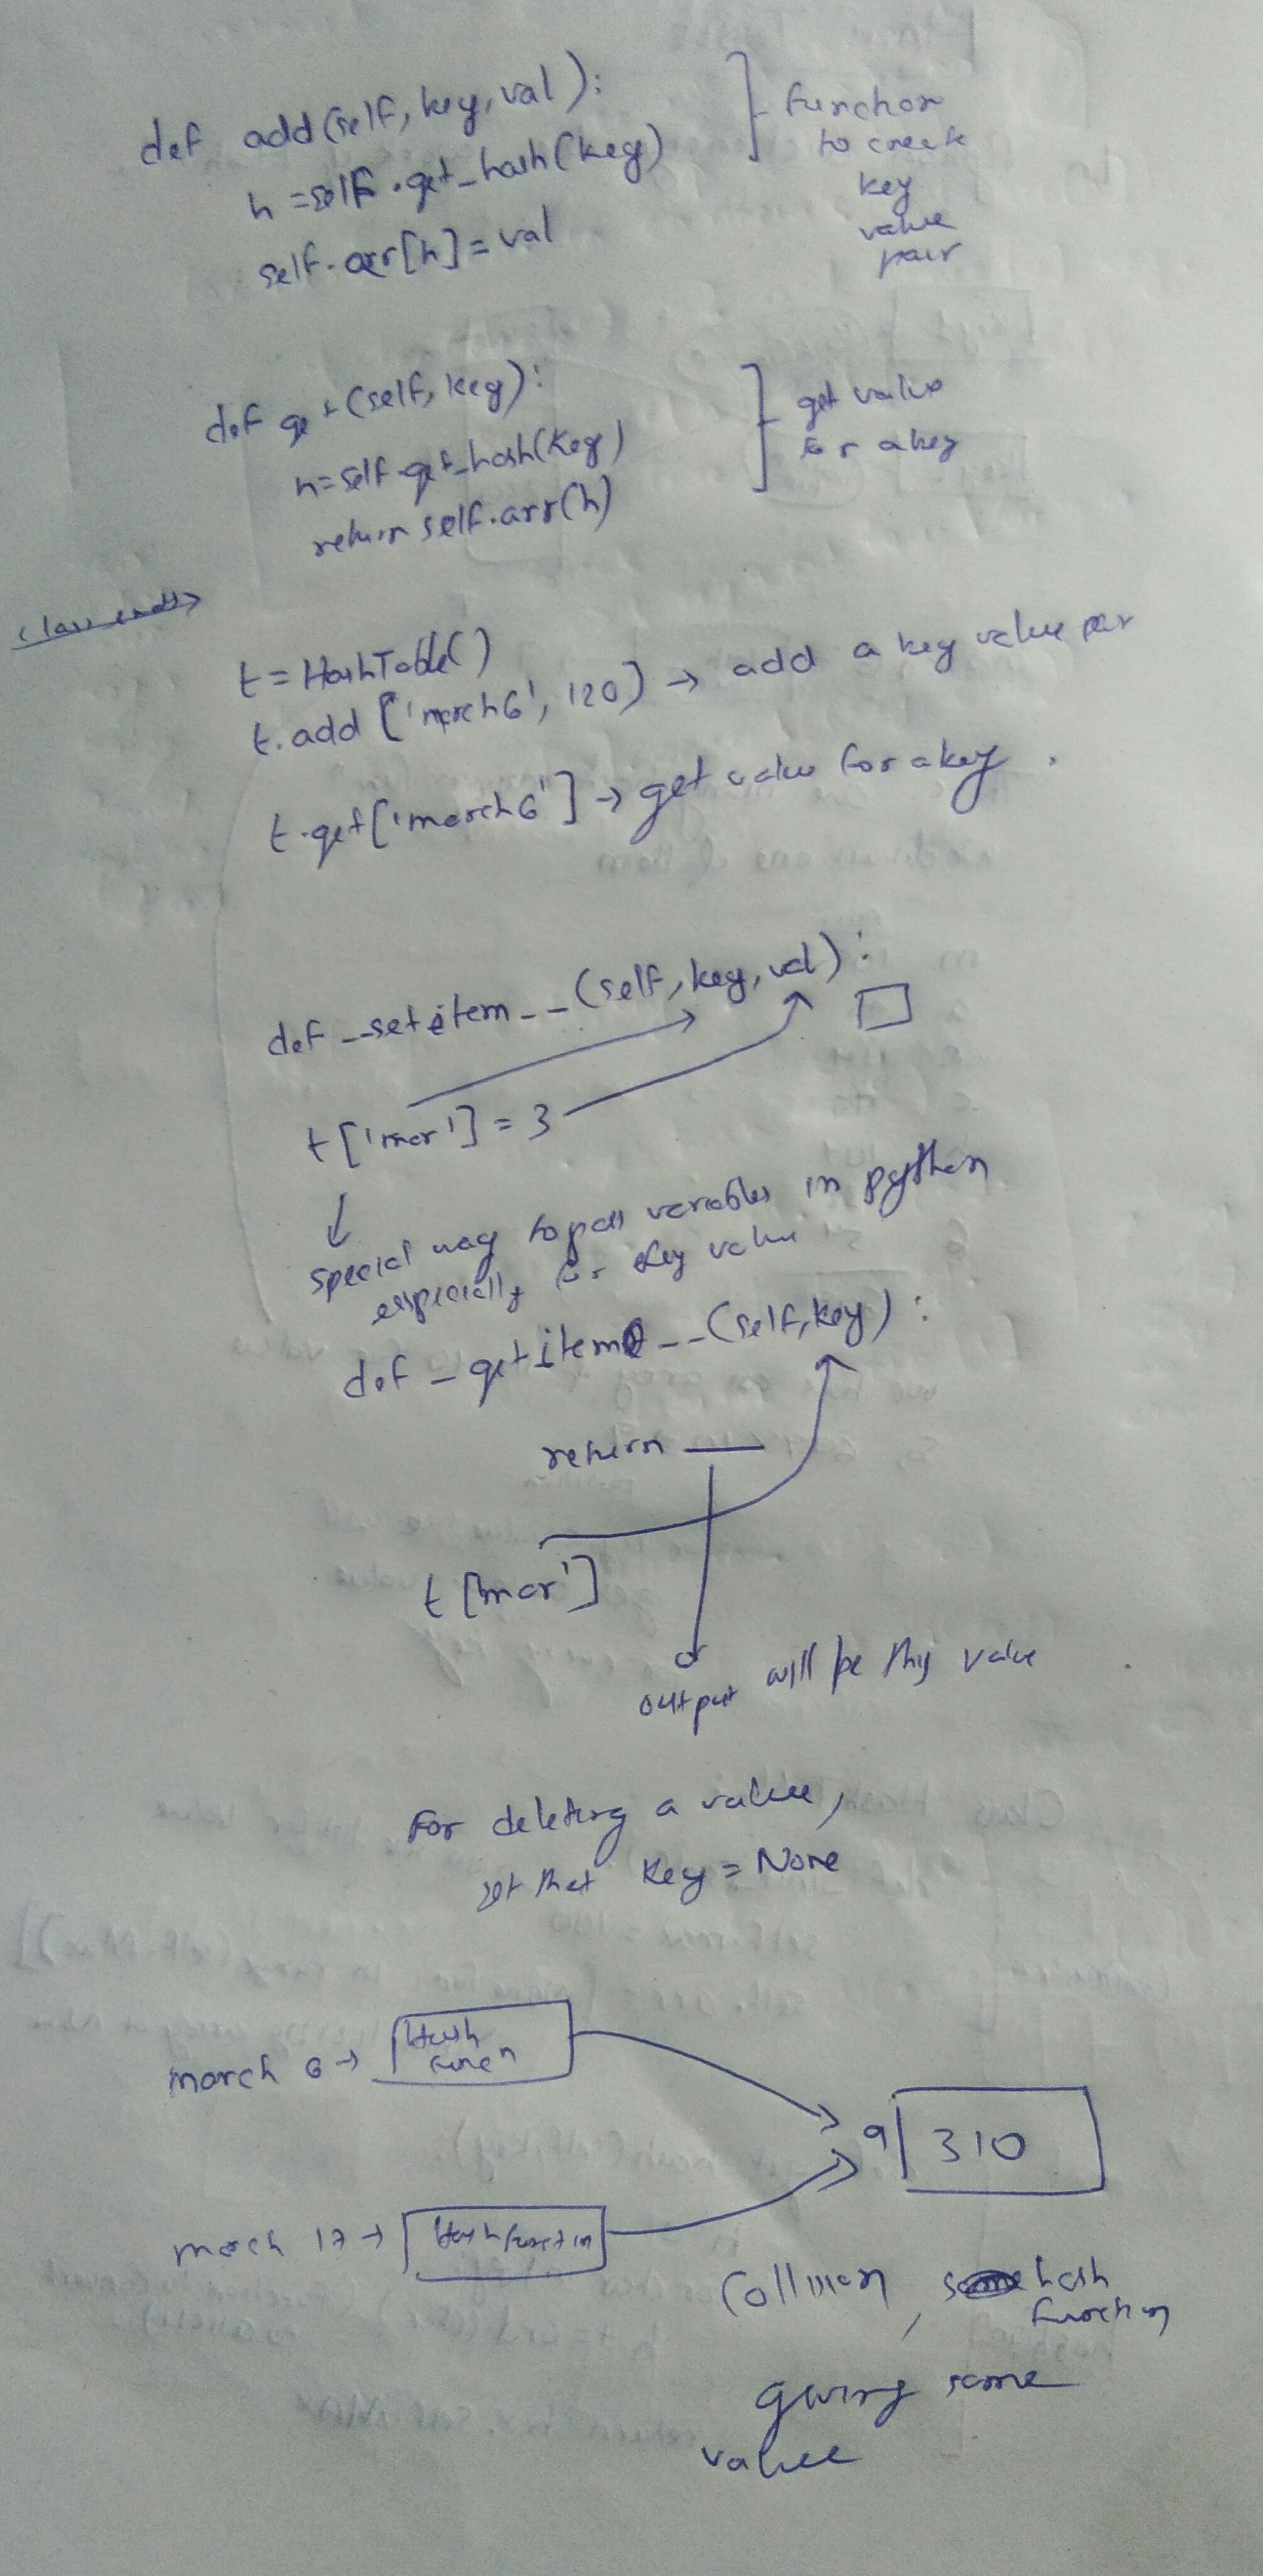 def add(self, key, val):
h = self.get_hash(key)
self.arr[h] = val
function
to create
key
value
pair
def get(self, key):
h = self.get_hash(key)
return self.arr(h)
get value
for a key
class ends
t = HashTable()
t.add['march6', 120) → add a key value pair
t.get['march6'] → get value for a key.
def __setitem__(self, key, val):
t['mar'] = 3
special way to pass variables in python
especially for key value
def _getitem__(self, key):
return
t[mar']
output will be this value
For deleting a value,
set that key = None
march 6 →
Hash
funcn
9
310
march 17 →
Hash function
Collision, hash
function
giving same
value